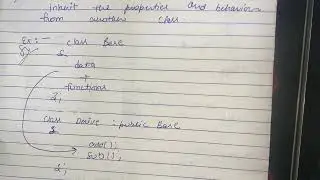 inherit the properties and behaviour
from another class.
Ex:-
class Base
{
data
+
functions
};
class Derive : public Base
{
add();
sub();
};